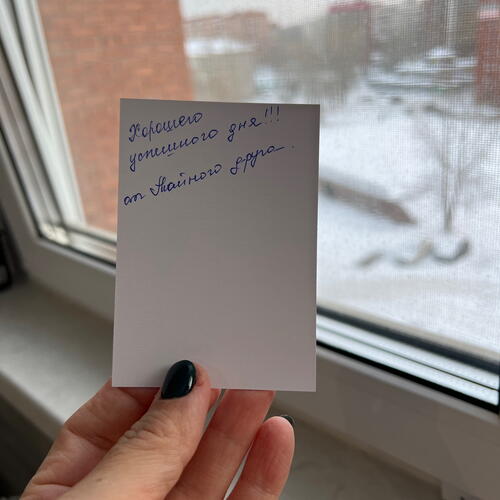 Хорошего
успешного дня!!!
от Тайного друга.